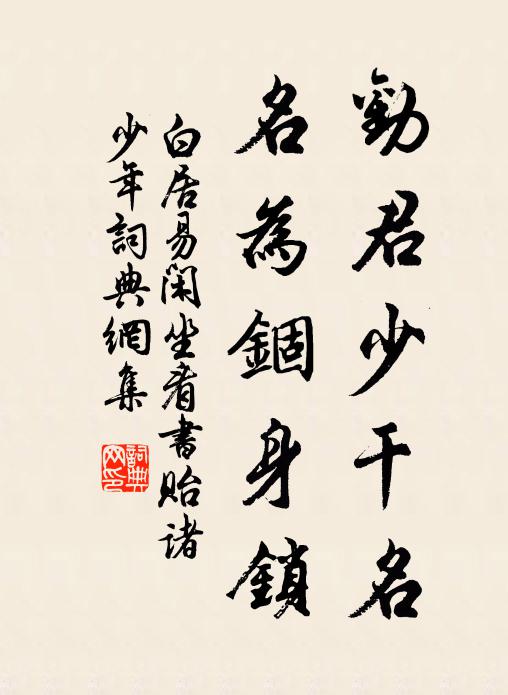 勸君少干名
名為錮身鎖
白居易閑坐看書貽諸
少年詞典網集
詞典
网印